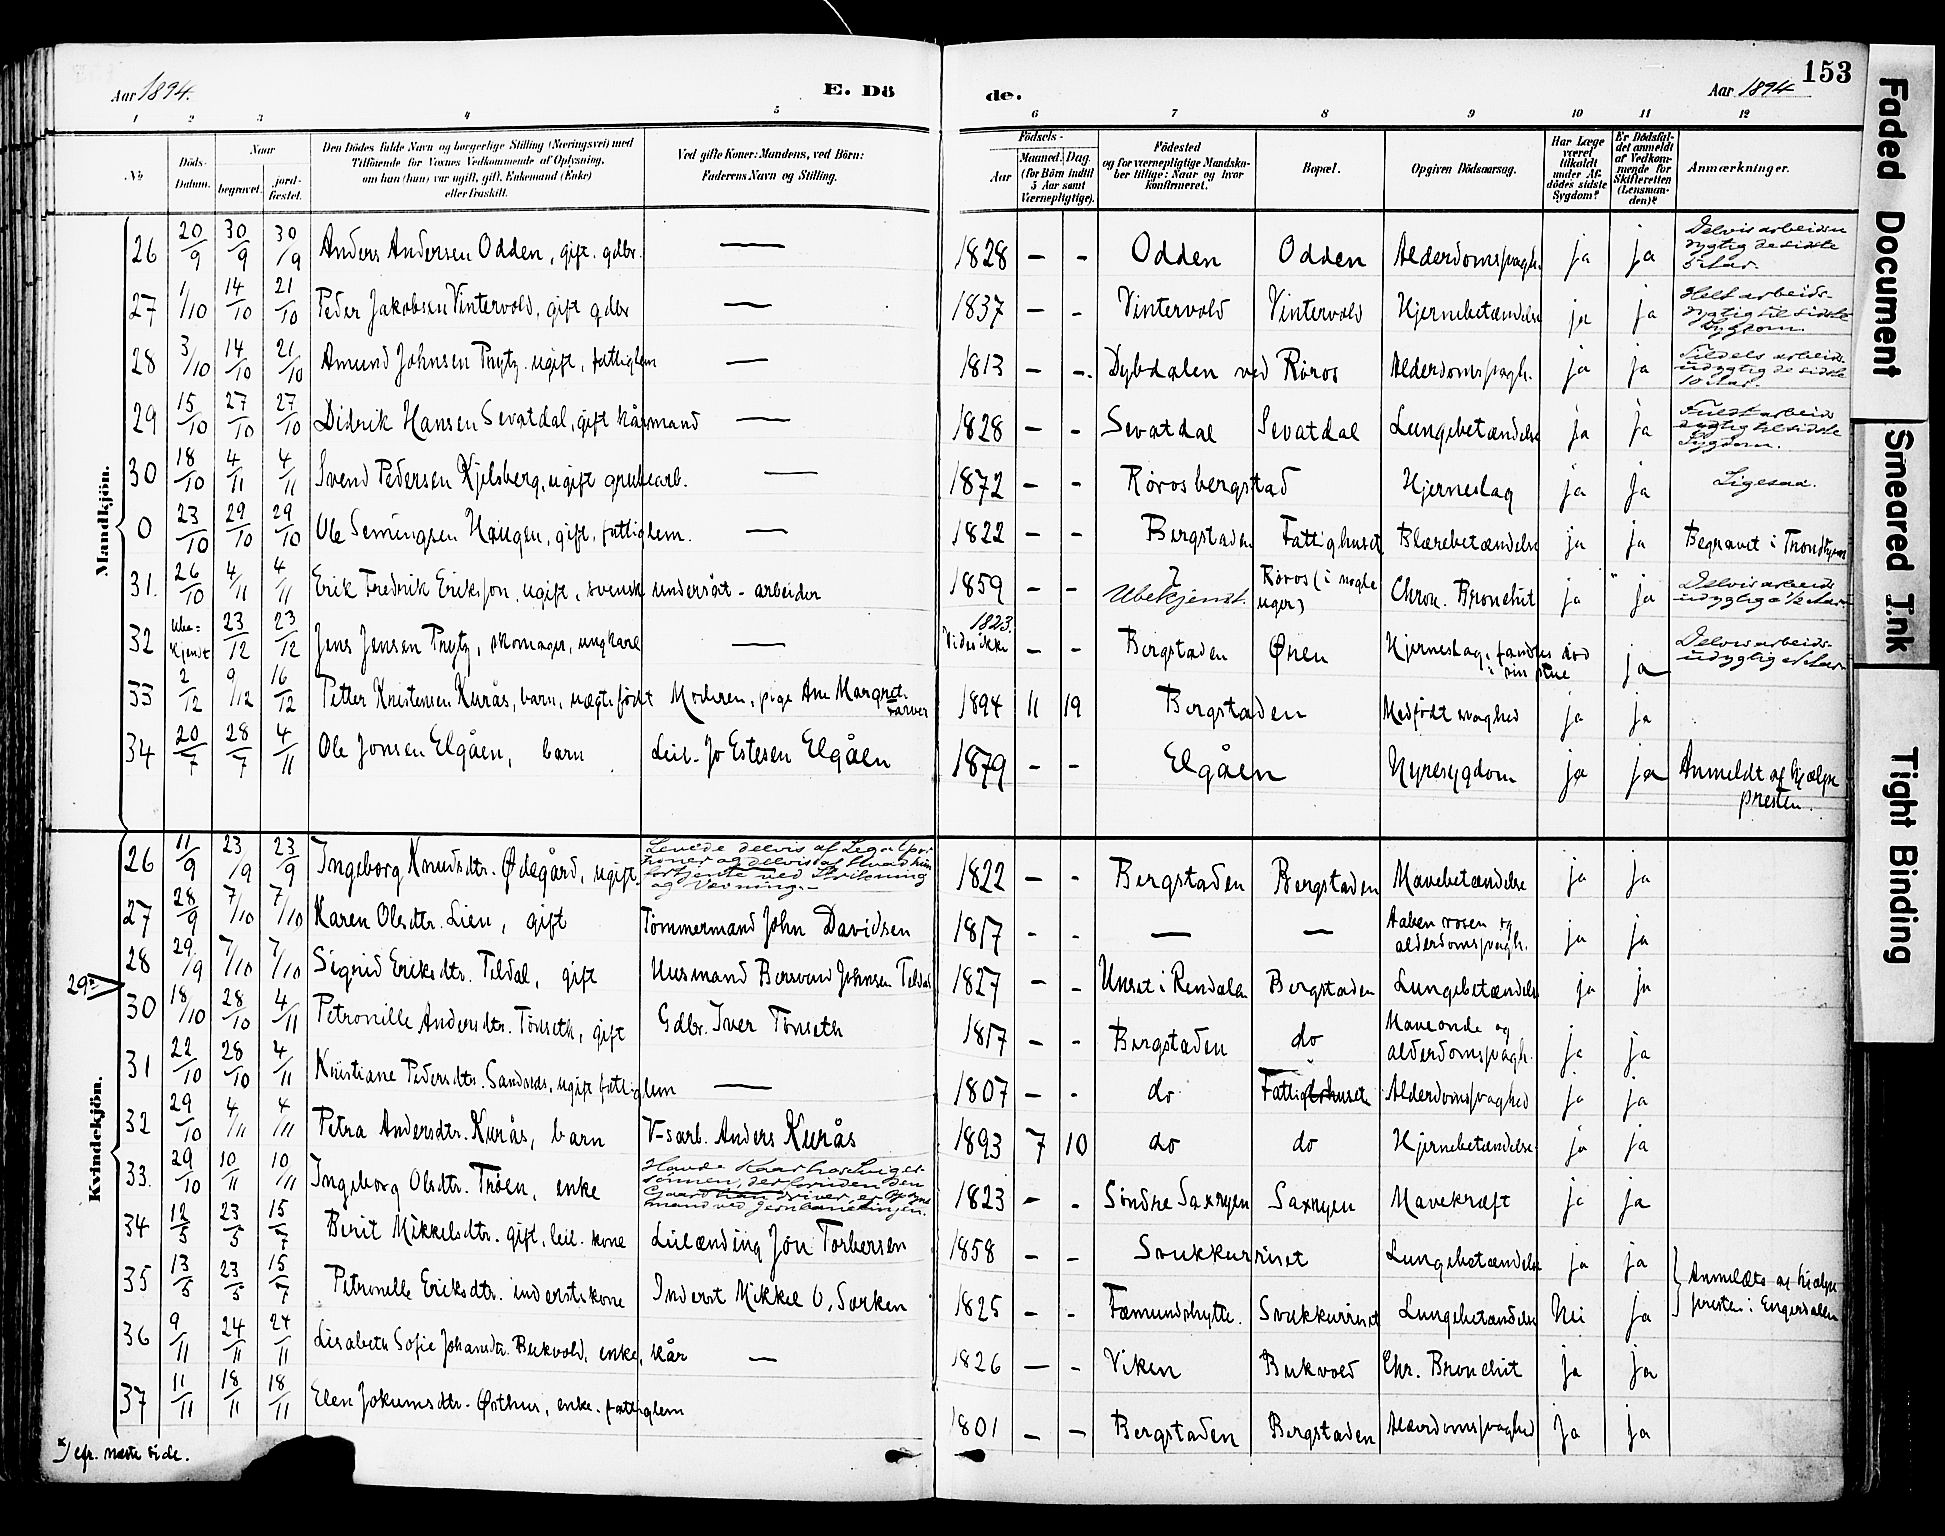 Aar 1894. E. Dö de. Aar 1894 153
1 2 3 4 5 6 7 8 9 10 11 12
№ Döds-Datum. Naar begravet. jordfæstet. Den Dödes fulde Navn og borgerlige Stilling (Næringsvei) med Tilföiende for Voxnes Vedkommende af Oplysning, om han (hun) var ugift, gift, Enkemand (Enke) eller fraskilt. Ved gifte Koner: Mandens, ved Börn: Faderens Navn og Stilling. Födsels- Aar Maaned. Dag. (for Börn indtil 5 Aar samt Værnepligtige). Födested og for værnepligtige Mandskaber tillige: Naar og hvor konfirmeret. Bopæl. Opgiven Dödsaarsag. Har Læge været tilkaldt under Afdödes sidste Sygdom? Er Dödsfaldet anmeldt af Vedkommende for Skifteretten (Lensmanden)? Anmærkninger.
Mandkjön.
26 20/9 30/9 30/9 Anders Andersen Odden, gift. gdbr. — 1828 - - Odden Odden Alderdomssvagh. ja ja Delvis arbeidsudygtig de sidste 5 Aar.
27 1/10 14/10 21/10 Peder Jakobsen Vintervold, gift gdbr — 1837 - - Vintervold Vintervold Hjernebetændelse ja ja Helt arbeidsdygtig til sidste Sygdom.
28 3/10 14/10 21/10 Amund Johnsen Prytz. ugift, fattiglem — 1813 - - Dybdalen ved Røros Alderdomssvagh. ja ja Tildels arbeidsudygtig de sidste 10 Aar.
29 15/10 27/10 27/10 Didrik Hansen Sevatdal, gift kårmand — 1828 - - Sevatdal Sevatdal Lungebetændelse ja ja Fuldt arbeidsdygtig til sidste Sygdom.
30 18/10 4/11 4/11 Svend Pedersen Kjelsberg, ugift grubearb. — 1872 - - Røros bergstad Hjerneslag ja ja Ligesaa.
0 23/10 29/10 29/10 Ole Semingsen Haugen, gift, fattiglem. — 1822 - - Bergstaden Fattighuset Blærebetændelse ja ja Begravet i Trondhjem
31. 26/10 4/11 4/11 Erik Fredrik Eriksson, ugift, svensk undersåt - arbeider 1859 - - ? Ubekjendt. Røros (i nogle uger) Chron. Bronchit ja ja Delvis arbeidsudygtig a 1/2 Aar
32 Ubekjendt 23/12 23/12 Jens Jensen Prytz, skomager, ungkarl — 1823. Vides ikke - - Bergstaden Øien Hjerneslag, fandtes død i sin stue ja Delvis arbeidsudygtig et Aar
33 2/12 9/12 16/12 Petter Kristensen Kurås, barn, uægte født Moderen, pige Ane Margret. Farver 1894 11 19 Bergstaden Medfødt svaghed ja ja
34 20/7 28/7 4/11 Ole Jonsen Elgåen, barn Leil. Jo Estesen Elgåen 1879 - - Elgåen Nyresygdom ja ja Anmeldt af hjælpepresten.
Kvindekjön.
26 11/9 23/9 23/9 Ingeborg Knudsdtr. Ødegård, ugift. Levede delvis af Legatportioner og delvis af hvad hun fortjente ved Strikning og Vævning. - 1822 - - Bergstaden Bergstaden Mavebetændelse ja ja
27 28/9 7/10 7/10 Karen Olsdtr. Lien, gift Tømmermand John Davidsen 1817 - - — — Aaben rosen og alderdomssvagh. ja ja
28 29/9 7/10 7/10 Sigrid Eriksdtr. Teldal, gift Husmand Bersvend Johnsen Teldal 1827 - - Unset i Rendalen Bergstaden Lungebetændelse ja ja
29 x)
30 18/10 28/10 4/11 Petronille Andersdtr. Tønseth, gift Gdbr. Iver Tønseth 1817 - - Bergstaden do Maveonde og alderdomssvagh. ja ja
31 22/10 28/10 4/11 Kristiane Pedersdtr. Sandnæs, ugift fattiglem — 1807 - - do Fattighuset Alderdomssvaghed ja ja
32 29/10 4/11 4/11 Petra Andersdtr. Kurås, barn V-sarb. Anders Kurås 1893 7 10 do do Hjernebetændelse ja ja
33. 29/10 10/11 10/11 Ingeborg Olsdtr. Trøen, enke Havde Kaar hos Svigersønnen, der foruden den Gaard han driver, er Opsynsmand ved Jernbanelinjen. 1823 - - Søndre Saxryen Saxryen Mavekræft ja ja
34 12/5 23/5 15/7 Berit Mikkelsdtr. gift, leil. kone Leilænding Jon Torbersen 1858 - - Svukkuriset Lungebetændelse ja ja Anmeldte af hjælpeprest i Engerdalen
35 13/5 23/5 15/7 Petronelle Eriksdtr. inderstkone Inderst Mikkel O. Sørken 1825 - - Fæmundshytte. Svukkuriset Lungebetændelse Nei ja
36 9/11 24/11 24/11 Lisabeth Sofie Johansdtr. Bukvold, enke, kår — 1826 - - Viken Bukvold Chr. Bronchit ja ja
37 11/11 18/11 18/11 Elen Jokumsdtr. Østhus, enke. fattiglem 1801 - - Bergstaden Bergstaden Alderdomssvaghed Ja ja
x) cfr. næste side.
Faded Document
Smeared Ink
Tight Binding